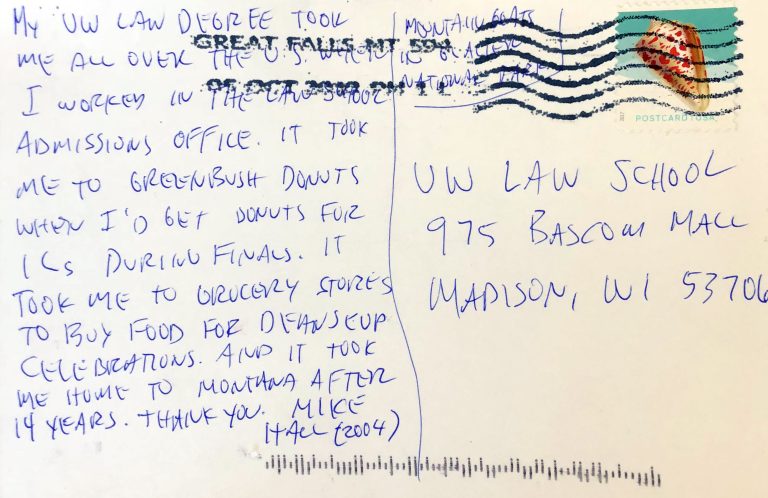 MY UW LAW DEGREE TOOK
ME ALL OVER THE U.S. WHEN
I WORKED IN THE LAW SCHOOL
ADMISSIONS OFFICE. IT TOOK
ME TO GREENBUSH DONUTS
WHEN I'D GET DONUTS FOR
1Ls DURING FINALS. IT
TOOK ME TO GROCERY STORES
TO BUY FOOD FOR DEAN'S CUP
CELEBRATIONS. AND IT TOOK
ME HOME TO MONTANA AFTER
14 YEARS. THANK YOU. MIKE
HALL (2004)
MOUNTAIN GOATS
IN GLACIER
NATIONAL PARK
GREAT FALLS MT 594
05 OCT 2018 PM 1 L
POSTCARD USA
UW LAW SCHOOL
975 BASCOM MALL
MADISON, WI 53706